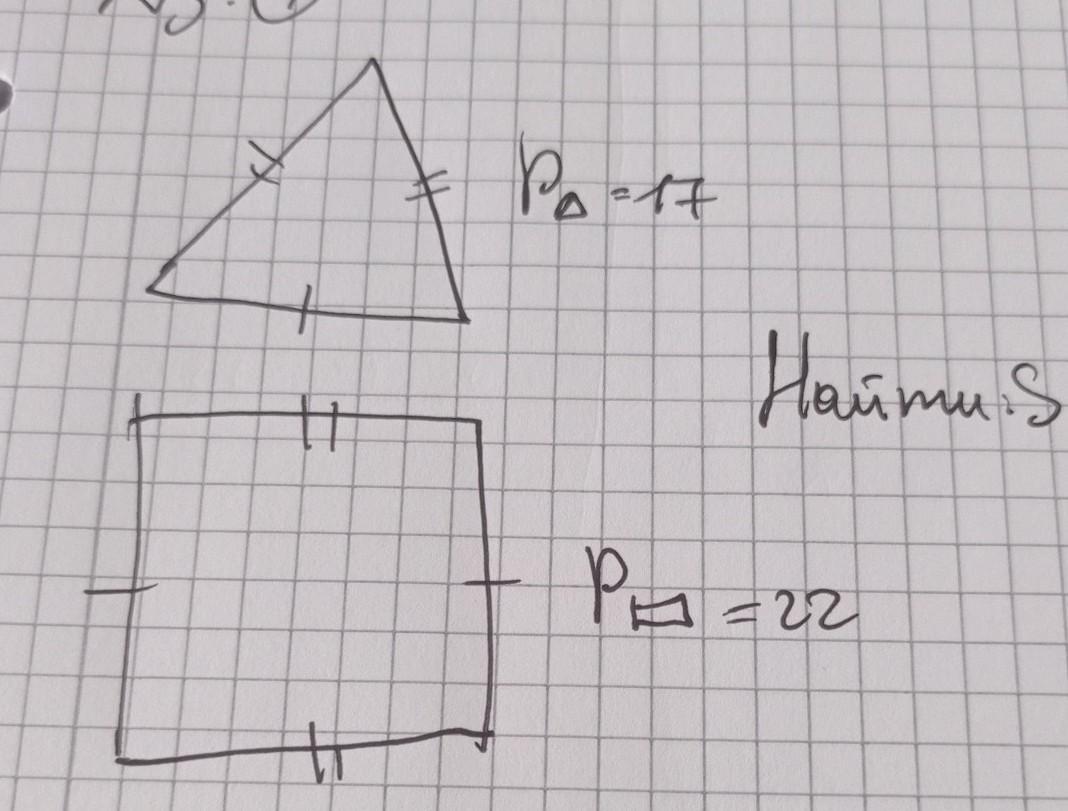 P△ = 17
Найти: S
P▭ = 22